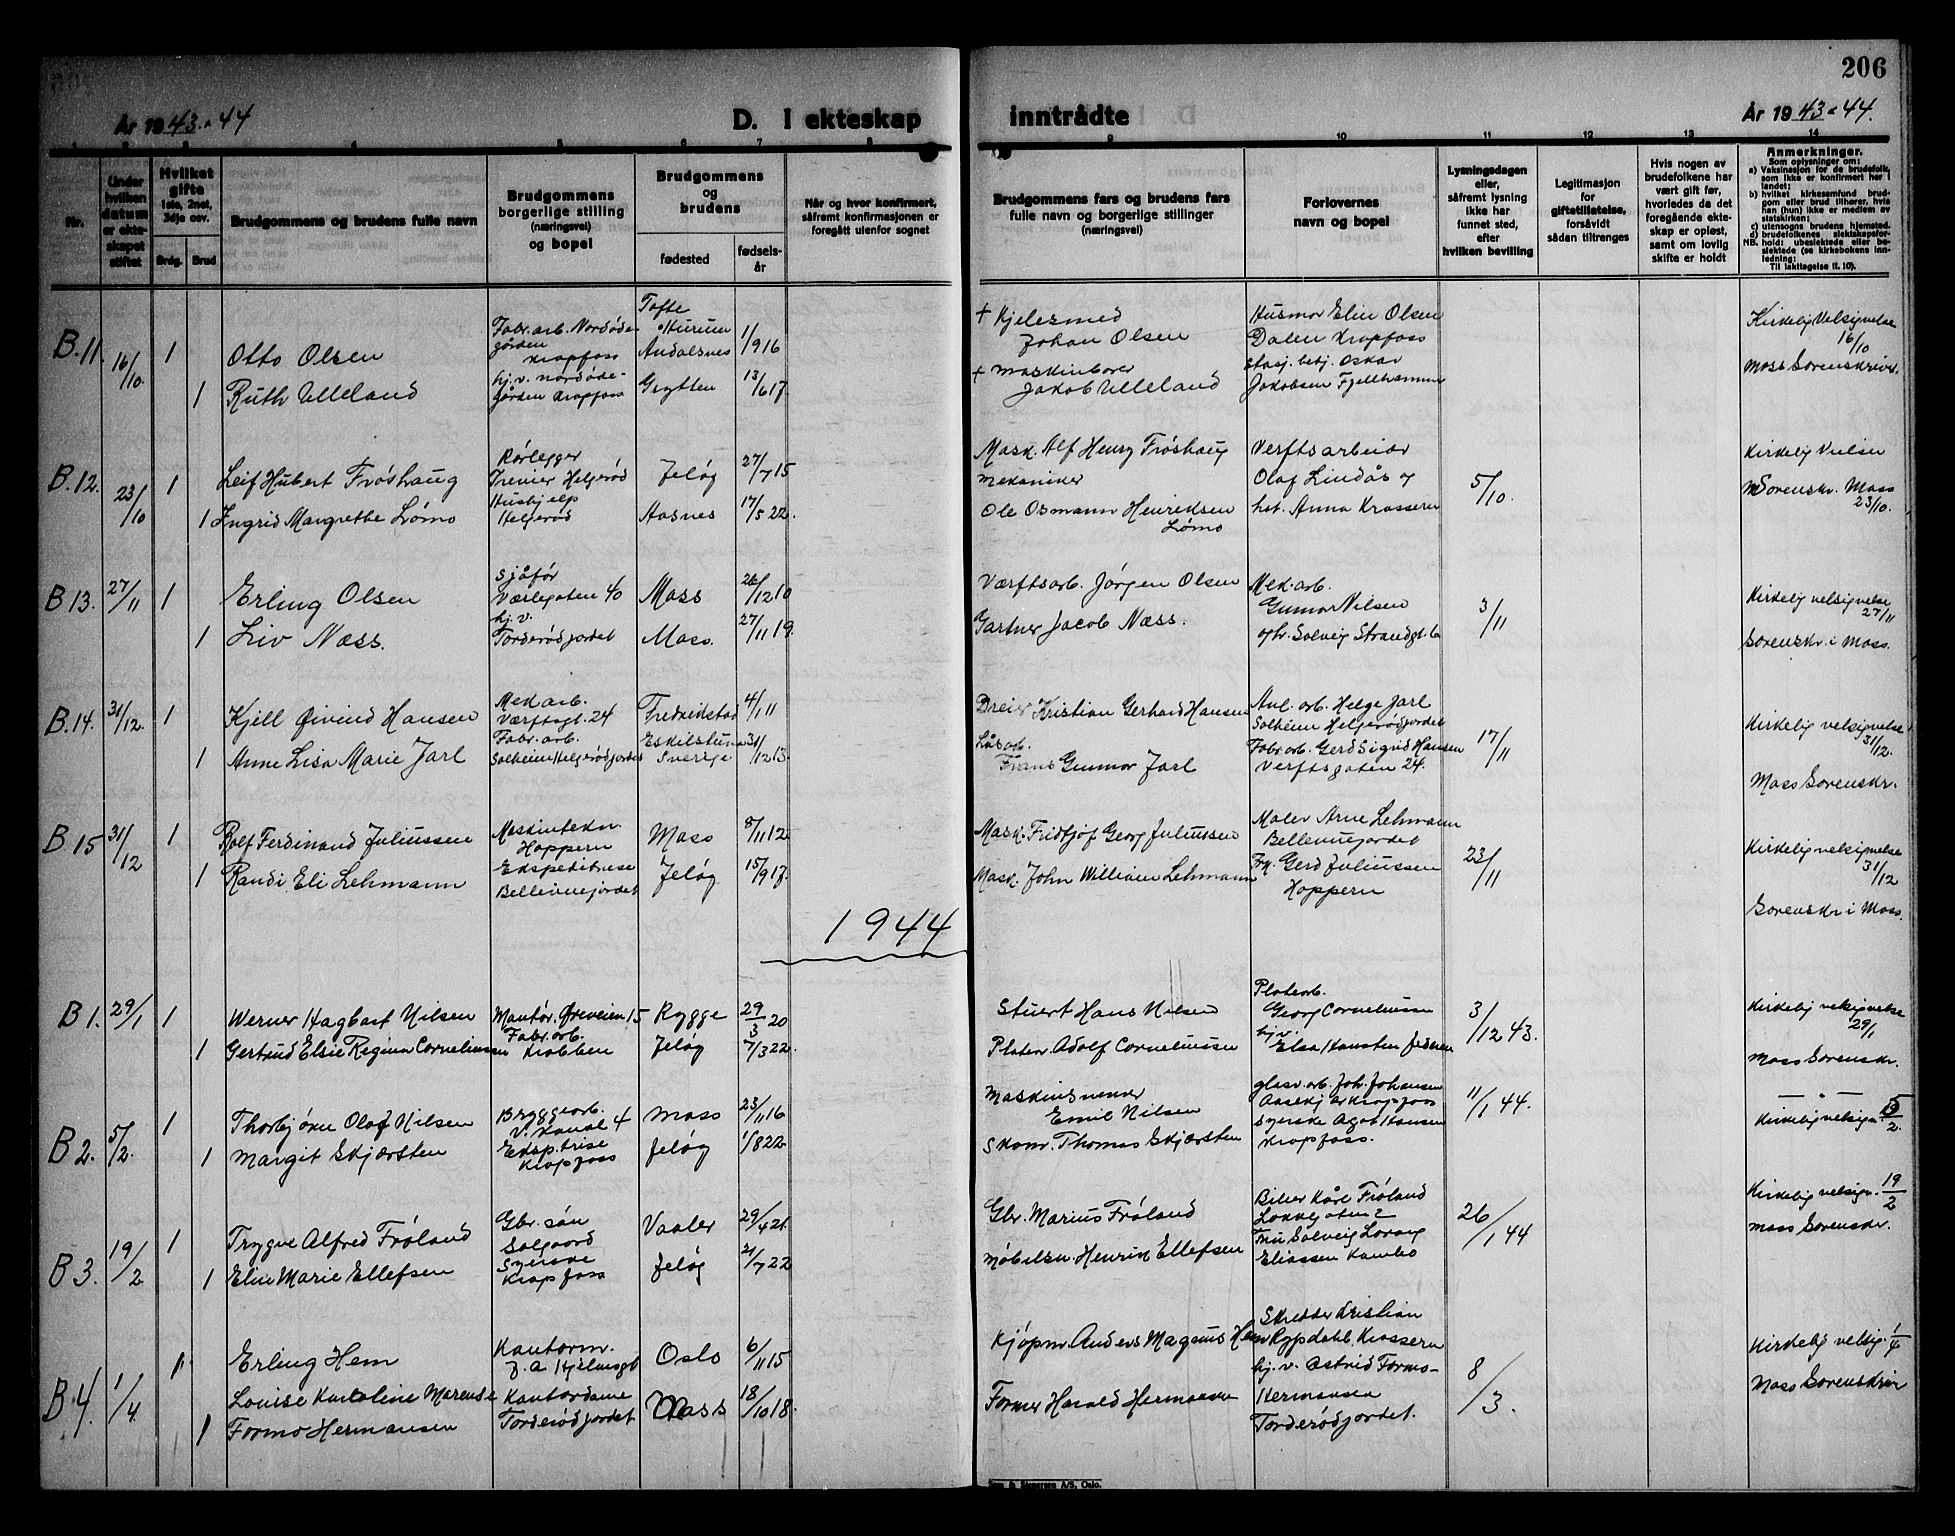 206
År 1943-44
D. I ekteskap
inntrådte
År 1943-44.
1 2 3 4 5 6 7 8
9 10 11 12 13 14
Nr.
Under hvilken datum er ekteskapet stiftet
Hvilket gifte 1ste, 2net, 3dje osv.
Brdg. Brud
Brudgommens og brudens fulle navn
Brudgommens borgerlige stilling (næringsvei) og bopel
Brudgommens og brudens
fødested
fødselsår
Når og hvor konfirmert, såfremt konfirmasjonen er foregått utenfor sognet
Brudgommens fars og brudens fars fulle navn og borgerlige stillinger (næringsvei)
Forlovernes navn og bopel
Lysningsdagen eller, såfremt lysning ikke har funnet sted, efter hvilken bevilling
Legitimasjon for giftetillatelse, forsåvidt sådan tiltrenges
Hvis nogen av brudefolkene har vært gift før, hvorledes da det foregående ekteskap er opløst, samt om lovlig skifte er holdt
Anmerkninger.
Som oplysninger om:
a) Vaksinasjon for de brudefolk, som ikke er konfirmert her i landet;
b) hvilket kirkesamfund brudgom eller brud tilhører, hvis han (hun) ikke er medlem av statskirken;
c) utensogns brudens hjemsted.
d) brudefolkenes slektskapsforhold: ubeslektede eller beslektede (se kirkebokens innledning:
NB. Til iakttagelse II. 10).
B.11. 16/10 1 Otto Olsen
Fabr.arb. Nordøde-gården Krapfoss
Tofte Hurum Andalsnes 1/9 16
+ Kjelesmed Johan Olsen
Husmor Elin Olsen Dalen Krapfoss
Kirkelig Velsignelse 16/10
1 Ruth Ulleland
hj.v. Nordøde-gården Krapfoss
Grytten 13/6 17.
+ maskinborer Jakob Ulleland
Stasj. betj. Oskar Jakobsen Fjellhammer
Moss Sorenskriv.
B.12. 23/10 1 Leif Hubert Frøshaug
Rørlegger Grenier Helgerød
Jeløy 27/7 15
Mask. Alf Henry Frøshaug
Verftsarbeider Olaf Lindås og
5/10.
Kirkelig Vielse
1 Ingrid Margrethe Lømo
Hushjelp Helgerød
Aasnes 17/5 22.
mekaniker Ole Osmann Henriksen Lømo
hst. Anna Krossern
Sorenskr. Moss 23/10.
B 13. 27/11 1 Erling Olsen
Sjåfør Værlegaten 40
Moss 26/12 10
Værftsarb. Jørgen Olsen
Mek.arb. Gunnar Nilsen
3/11
Kirkelig velsignelse 27/11
1 Liv Næss.
hj.v. Torderødjordet
Moss. 27/11 19.
Gartner Jacob Næss.
Solveig Strandgt. 6
Sorenskr. i Moss.
B.14. 31/12. 1 Kjell Øivind Hansen
Mek arb. Værftsgt. 24
Fredrikstad 4/1 11
Dreier Kristian Gerhard Hansen
Avl. arb. Helge Jarl Solheim Helgerødjordet
17/11
Kirkelig velsignelse 31/12.
1 Anne Lisa Marie Jarl
Fabr. arb. Solheim Helgerødjordet
Eskilstuna Sverige 31/12 13.
Låsarb. Frans Gunnar Jarl
Fabr arb. Gerd Sigrid Hansen Verftsgaten 24.
Moss Sorenskr.
B 15 31/12 1 Rolf Ferdinand Juliussen
Maskintekn. Hoppern
Moss 8/11 12.
Mask. Fridtjof Georg Juliussen
Maler Arne Lehmann Bellevuejordet
23/11
Kirkelig velsignelse 31/12
1 Randi Eli Lehmann
Ekspeditrise Bellevuejordet
Jeløy 15/9 17.
Mask. John William Lehmann
Frk. Gerd Juliussen Hoppern
Sorenskr i Moss.
1944
B 1. 29/1 1 Werner Hagbart Nilsen
Montør. Øreveien 15
Rygge 29/3 20
Stuert Hans Nilsen
Platearb. Georg Corneliussen
3/12 43.
Kirkelig velsignelse 29/1
1 Gertrud Elsie Regina Corneliussen
Fabr. arb. Krabben
Jeløy 7/3 22.
Platear. Adolf Corneliussen
hj.v. Elsa
Moss Sorenskr.
B 2. 5/2. 1 Thorbjørn Olaf Nilsen
Bryggearb. V. Kanal 4
Moss 23/11 16
Maskinsnemer Emil Nilsen
glasv. arb. Joh. Johansen Krapfoss
11/1 44.
Kirkelig velsign. 5/2.
1 Margit Skjærsten
Edsptrise Krapfoss
Jeløy 1/8 22
Skom. Thomas Skjærsten
Syerske Agot Hansen Krapfoss.
B 3. 19/2 1 Trygve Alfred Frøland
Gbr. søn Solgaard
Vaaler 29/4 21.
Gbr. Marius Frøland
Bileier Kåre Frøland Lokkegaten 2
26/1 44
Kirkelig velsign. 19/2
1 Elin Marie Ellefsen
Syerske Krapfoss
Jeløy 21/7 22
Møbelsn. Henrik Ellefsen
Fru Solveig Lovaig Eliassen Kambo
Moss Sorenskr.
B 4. 1/4. 1 Erling Hem
Kontorm.
Oslo 6/11 15
Kjøpm. Anders Magnus Hem
Skredder Kristian Rypdahl Krossern
8/3.
Kirkelig velsig. 1/4
1 Louise Karoline Marense Formo Hermansen
Kontordame Torderødjordet
Moss 18/10 18.
Former Harald Hermansen
hj. v. Astrid Formo-Hermansen Torderødjordet.
Moss Sorenskriv